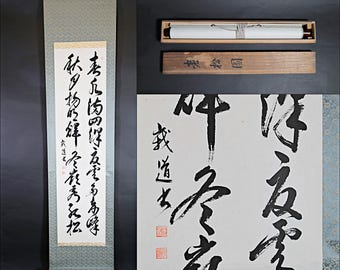 春水満四澤夏雲多奇峰
秋月揚明輝冬嶺秀孤松
道書
澤夏雲
輝冬嶺
道書